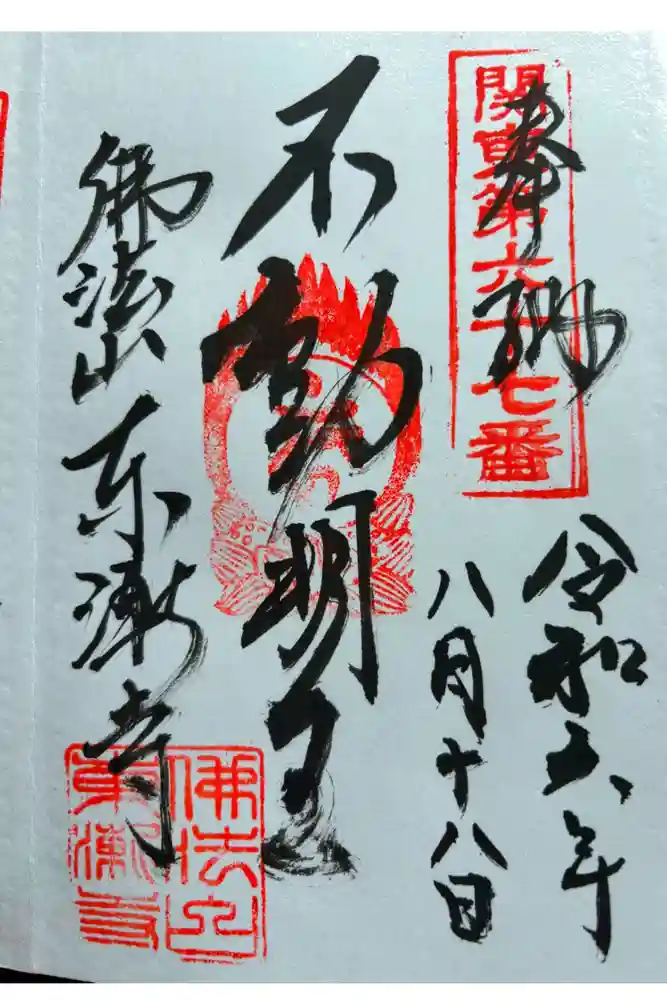 奉納
関東第六十七番
令和五年
八月十八日
不動明王
佛法山
東漸寺
佛法山
東漸寺